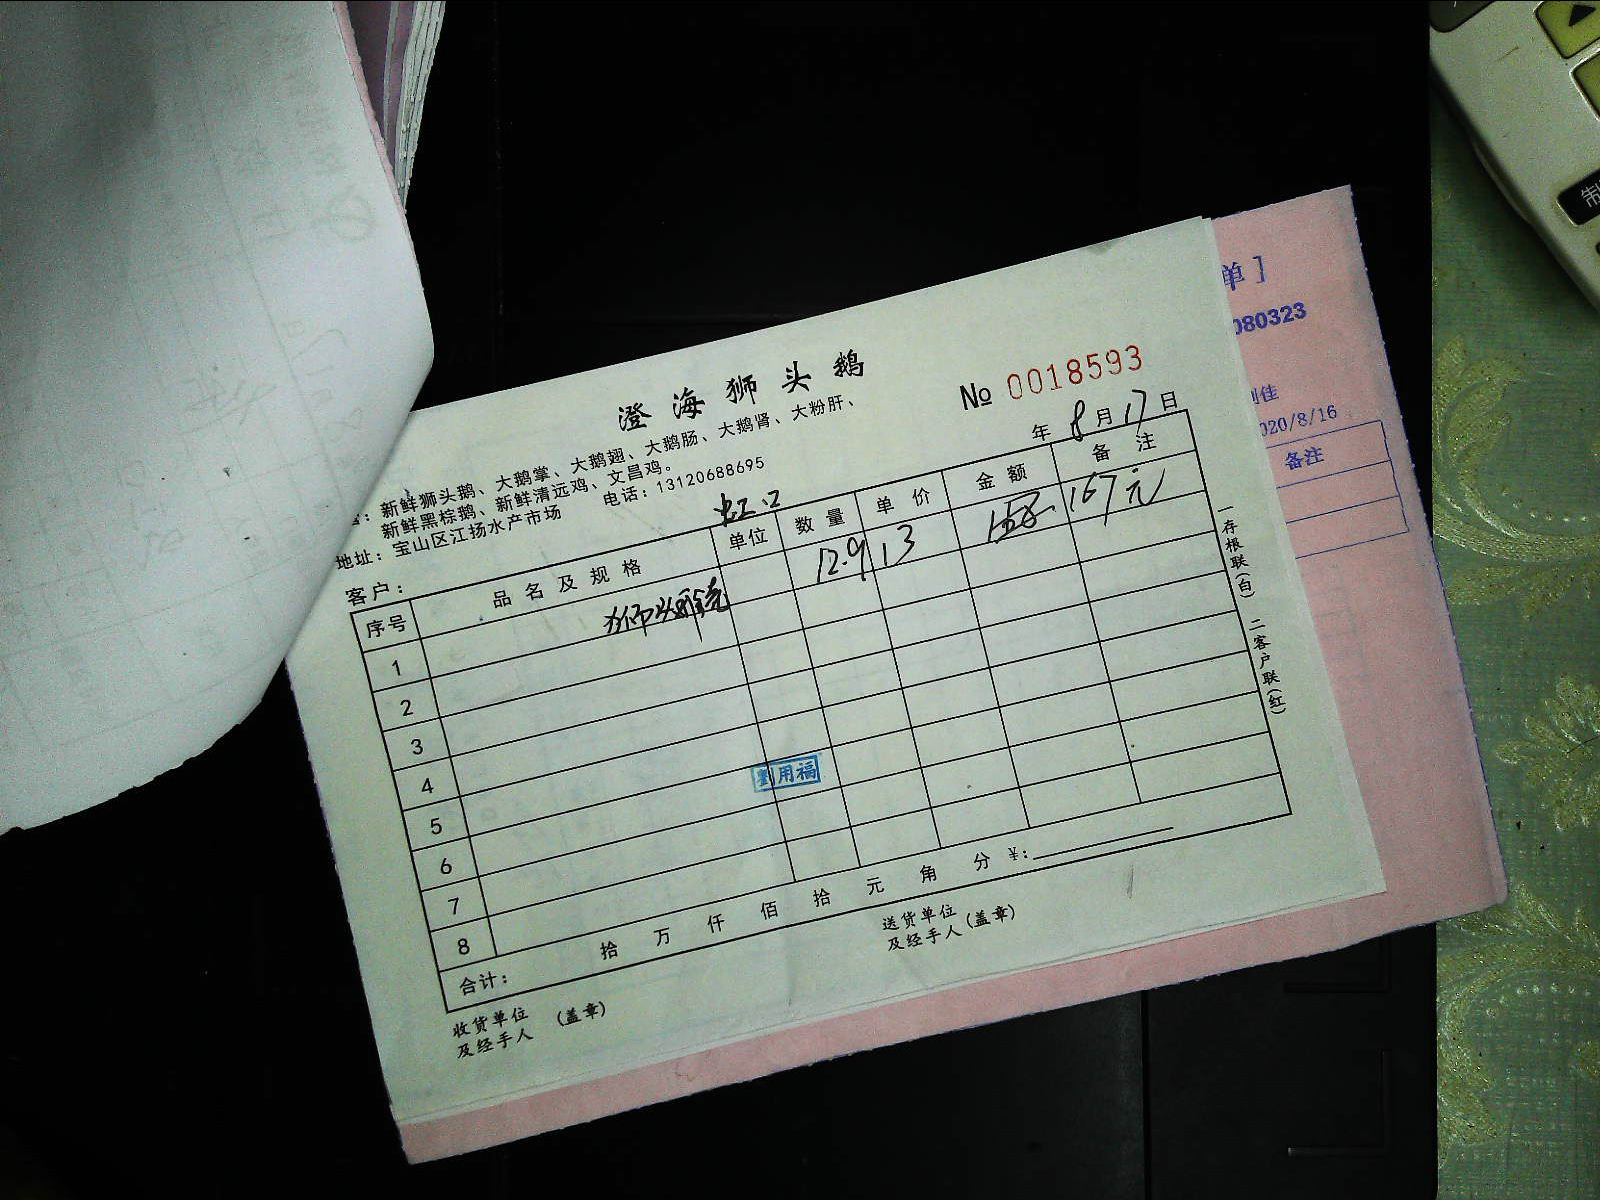 澄海狮头鹅
№ 0018593
:新鲜狮头鹅、大鹅掌、大鹅翅、大鹅肠、大鹅肾、大粉肝、
新鲜黑棕鹅、新鲜清远鸡、文昌鸡。
地址:宝山区江扬水产市场 电话:13120688695
年 8 月 17 日
客户: 虹口
序号 品名及规格 单位 数量 单价 金额 备注
1 12.9 13 167元
2
3
4
5
6
7
8
劉用福
合计: 拾 万 仟 佰 拾 元 角 分 ¥:
收货单位
及经手人 (盖章)
送货单位
及经手人 (盖章)
一存根联(白) 二客户联(红)
单]
080323
佳
020/8/16
备注
制